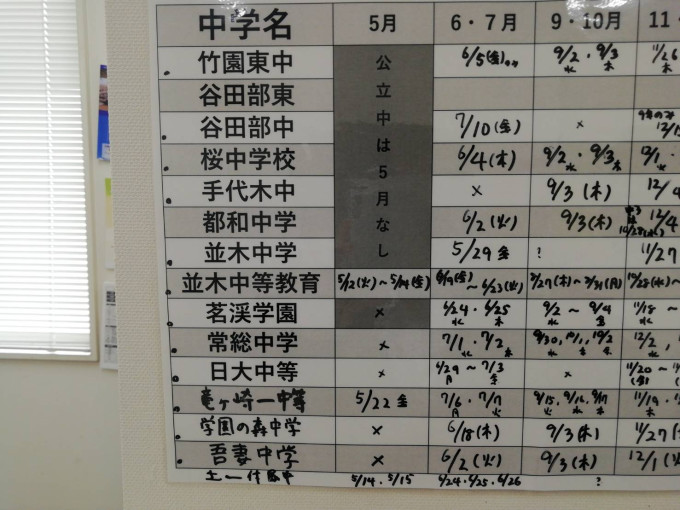 中学名 5月 6・7月 9・10月 11・
竹園東中 6/5(金) 9/2・9/3 水 木 11/26 木
谷田部東
谷田部中 7/10(金) × 12/1
桜中学校 6/4(木) 9/2・9/3 水 木 12/1・
手代木中 × 9/3(木) 12/4
都和中学 6/2(火) 9/3(木) 12/4
並木中学 5/29 金 ? 11/27
公立中は5月なし
並木中等教育 5/12(火)~5/14(金) ~6/23(火) 8/27(木)~8/31(月) 10/28(水)~
茗渓学園 × 6/24・6/25 水 木 9/2~9/4 水 金 11/18~ 水
常総中学 × 7/1・7/2 水 木 9/30,10/1,10/2 12/2,
日大中等 × 6/29~7/3 月 金 × 11/20~
竜ヶ崎一中等 5/22 金 7/6・7/7 月 火 9/15,9/16,9/17 火 水 木 11/19・
学園の森中学 × 6/18(木) 9/3(木) 11/27
吾妻中学 × 6/2(火) 9/3(木) 12/1(火
土一付属中 5/14・5/15 6/24・6/25・6/26 ?